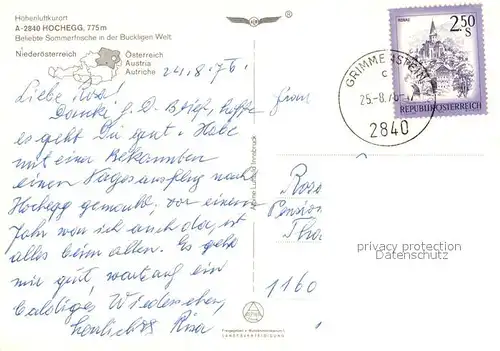 Höhenluftkurort
A-2840 HOCHEGG, 775m
Beliebte Sommerfrische in der Buckligen Welt.
Niederösterreich
Österreich
Austria
Autriche
24.8.76.
Liebe Rosa!
Danke f. D. Brief, hoffe
es geht Dir gut. Habe
mit einer Bekannten
einen Tagesausflug nach
Hochegg gemacht, vor einem
Jahr war ich auch da, ist
alles beim alten. Es geht
mir gut, warte auf ein
baldiges Wiedersehen,
herzlichst Risa
Alpine Luftbild Innsbruck
LANDESVERTEIDIGUNG
MURAU
2.50
S
REPUBLIK ÖSTERREICH
GRIMMENSTEIN
c
25.-8.76
2840
Frau
Rosa
Pension
1160
privacy protection
Datenschutz